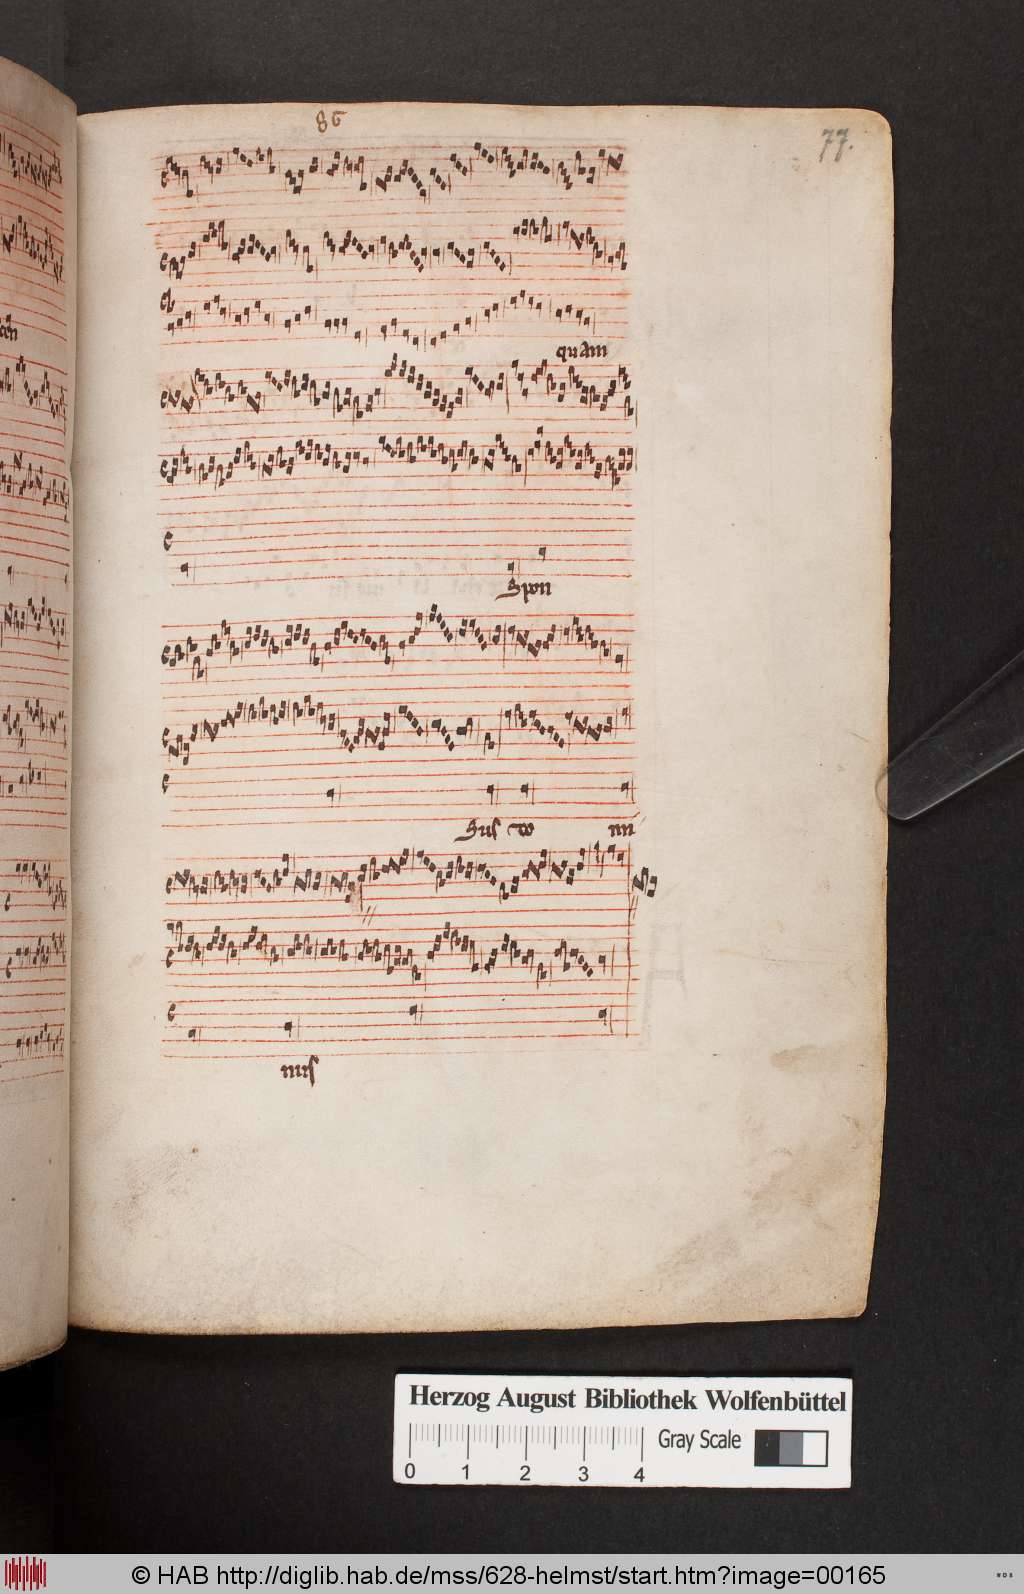 86
77.
quam
Spon
Sus to ni
nus
Herzog August Bibliothek Wolfenbüttel
Gray Scale
0 1 2 3 4
© HAB http://diglib.hab.de/mss/628-helmst/start.htm?image=00165